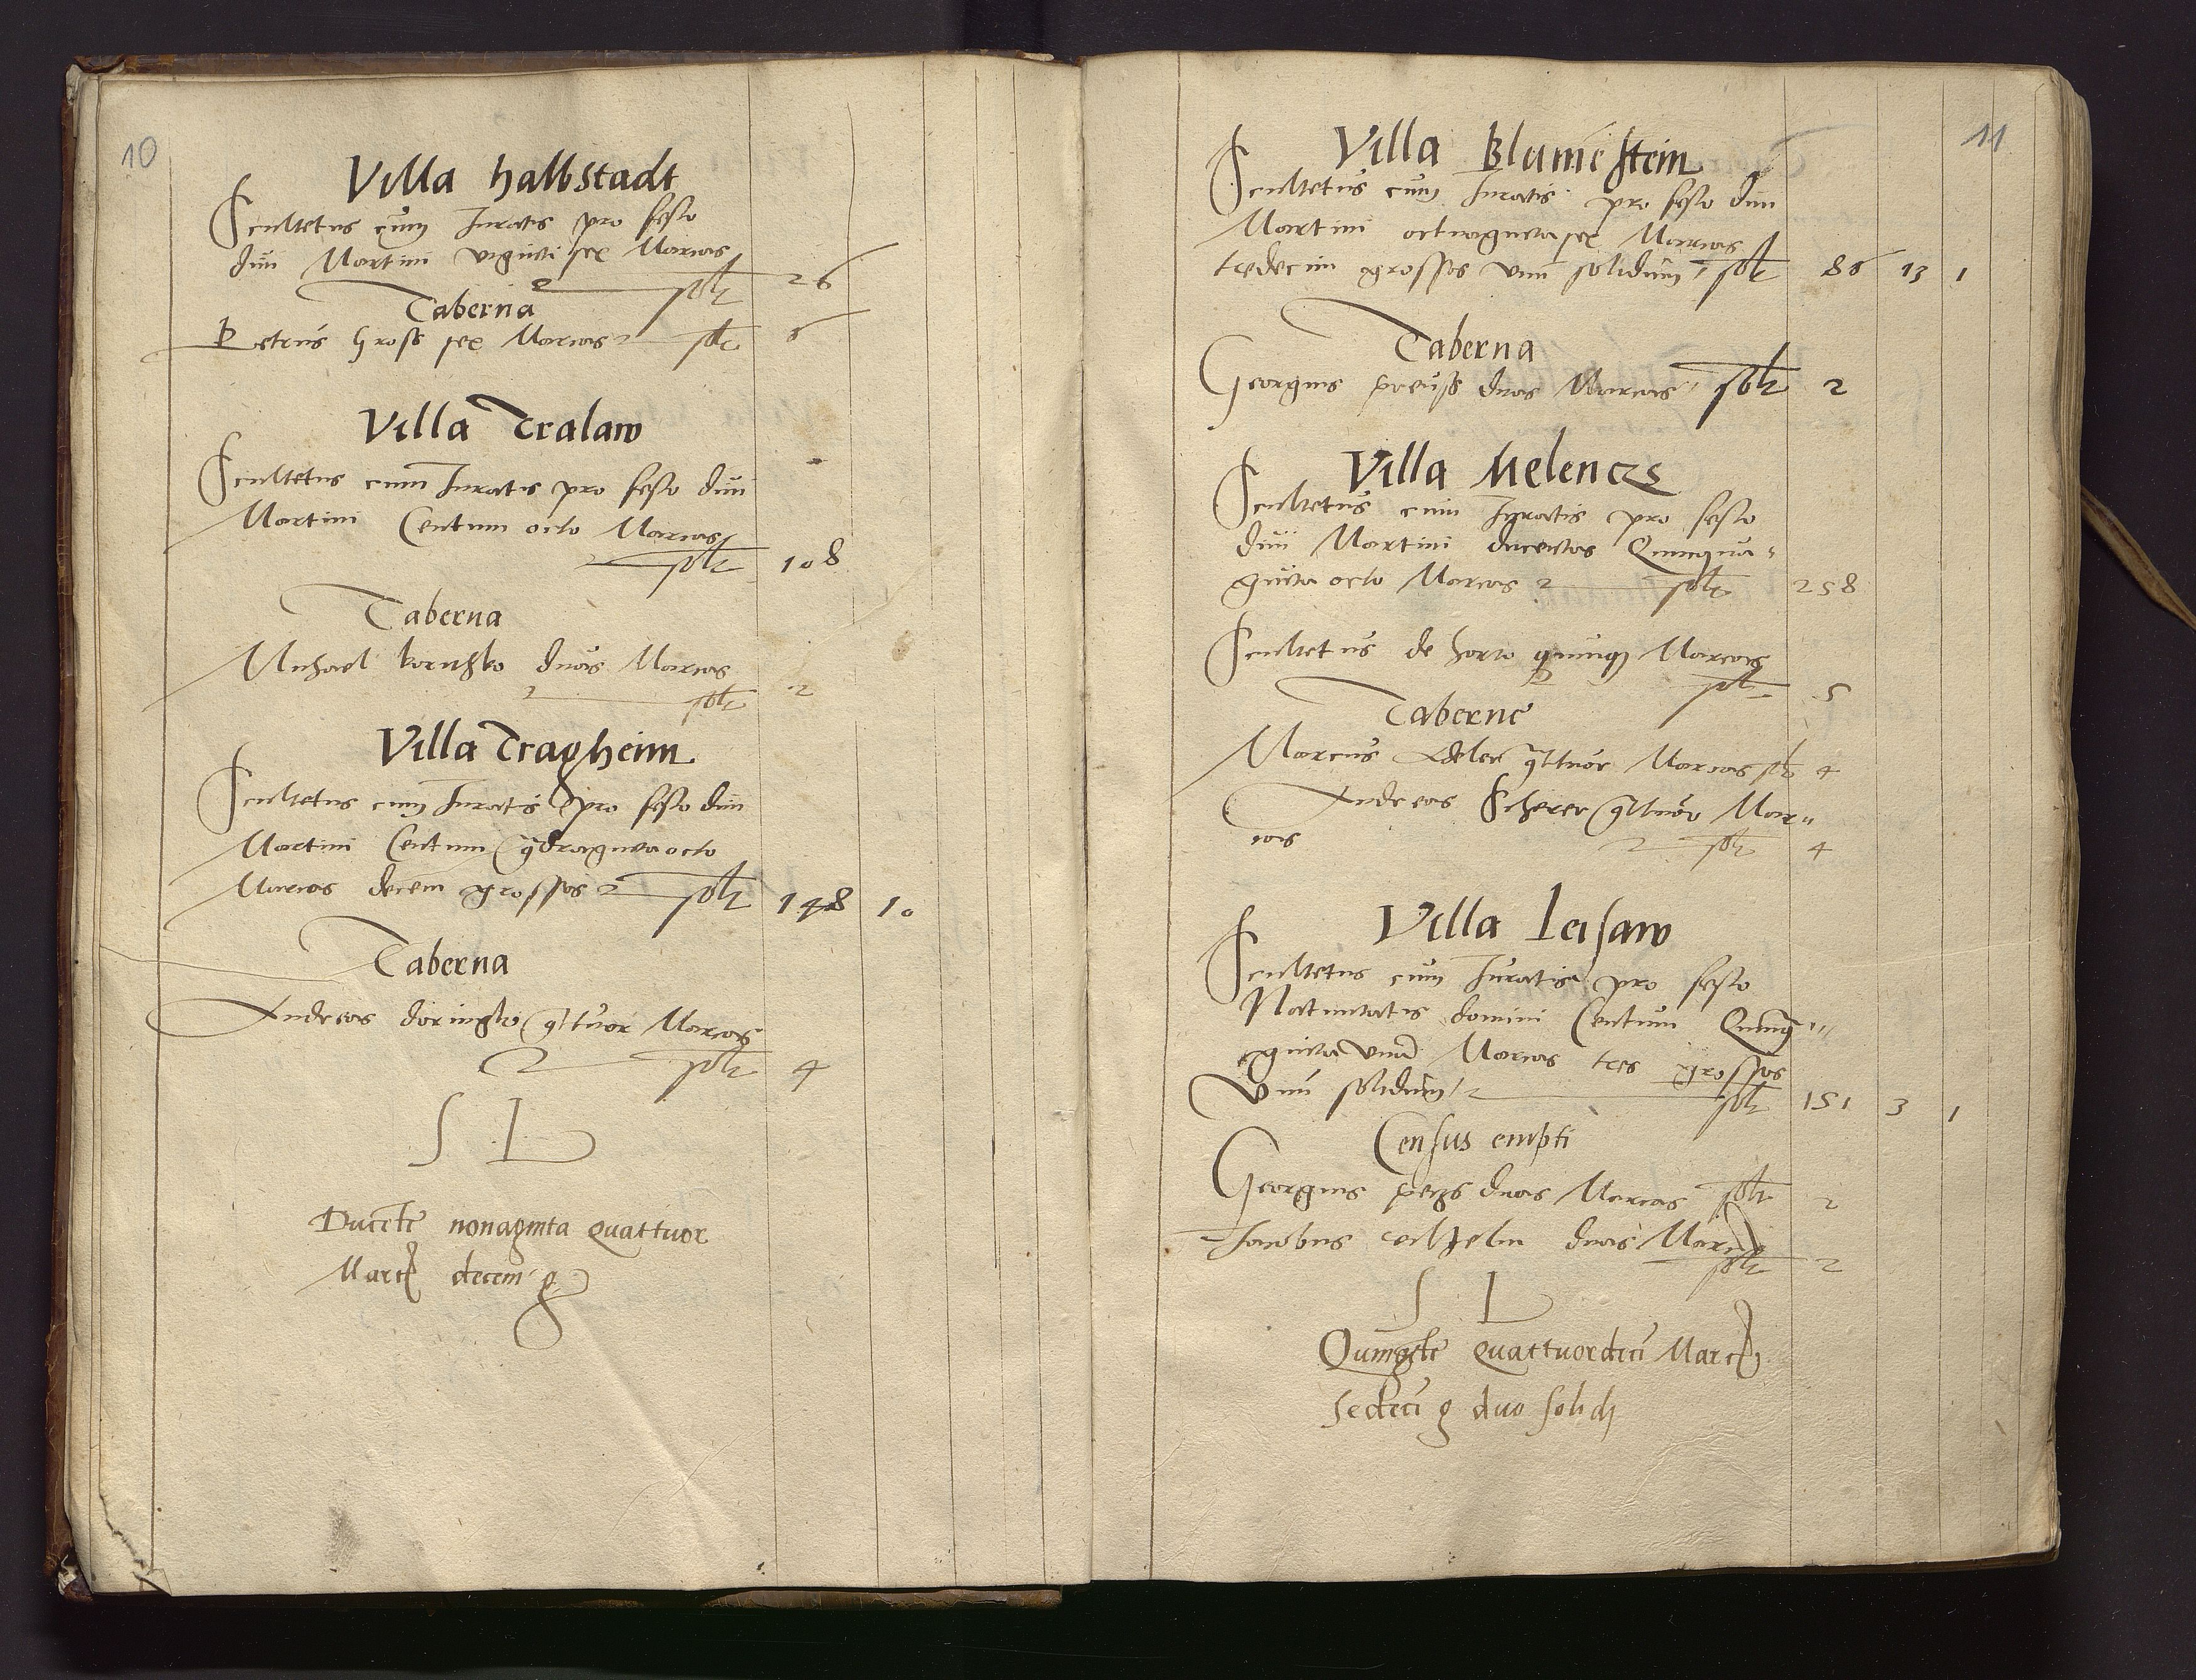 10
Villa halbstadt
Scultetus cum Juratis pro festo
diui Martini viginti sex Marcas
solt 26
Taberna
Petrus Gross sex Marcas solt 6
Villa Tralaw
Scultetus cum Juratis pro festo diui
Martini Centum octo Marcas
solt 108
Taberna
Michael duas Marcas
solt 2
Villa Tragheim
Scultetus cum Juratis pro festo diui
Martini Centum qdraginta octo
Marcas decem grossos solt 148 10
Taberna
Andreas qttuor Marcas
solt 4
S L
Ducete nonaginta quattuor
Marc decem g
11
Villa Blumestein
Scultetus cum Juratis pro festo diui
Martini octuaginta sex Marcas
tredecim grossos vnu solidum solt 86 13 1
Taberna
Georgius preuss duas Marcas solt 2
Villa Melencze
Scultetus cum Juratis pro festo
diui Martini ducentas Quinqua-
ginta octo Marcas solt 258
Scultetus de horto quinq Marcas
solt 5
Taberne
Marcus Adeler qttuor Marcas solt 4
Andreas Scherer qttuor Mar-
cas solt 4
Villa Leisaw
Scultetus cum Juratis pro festo
Natiuitatis domini Centum Quinq-
ginta vna Marcas tres grossos
Vnu solidum solt 151 3 1
Census empti
Georgius duas Marcas solt 2
Jacobus duas Marc
solt 2
S L
Quingete quattuordeci Marc
sedeci g duo solidi